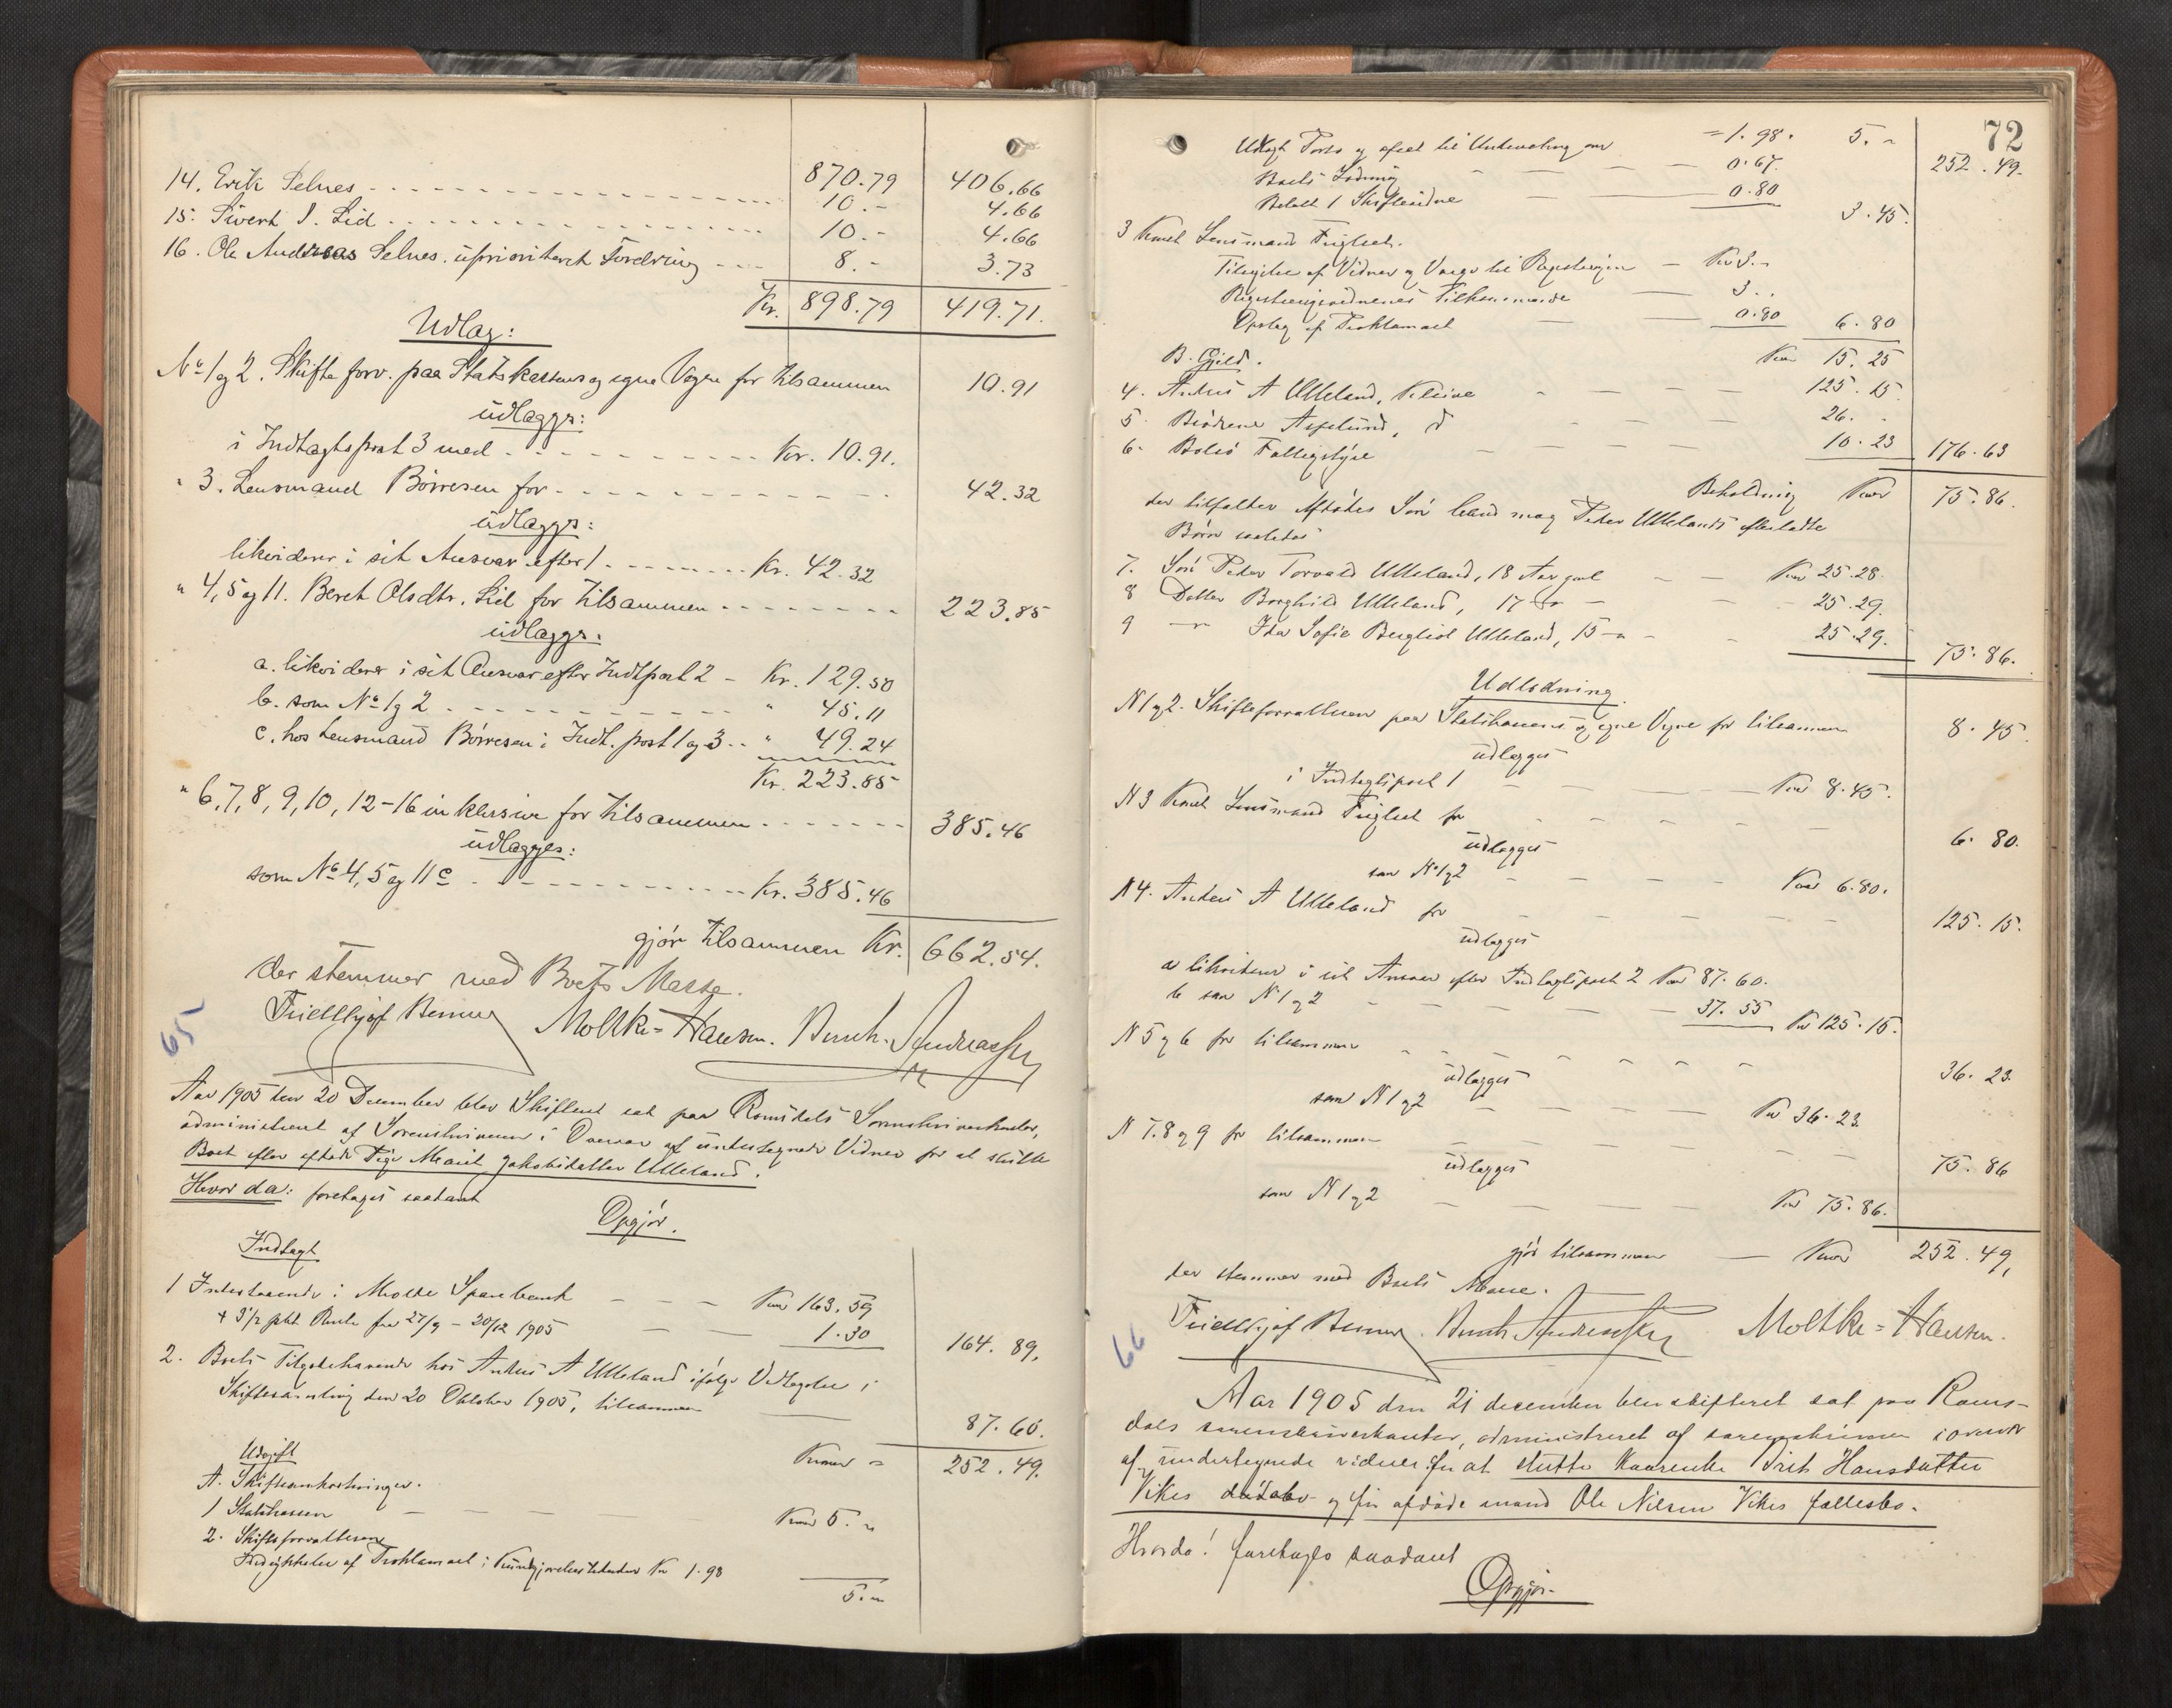 870.79 406.66
14. Erik Selnes - - - - 10.- 4.66
15. Sivert I. Lid - - - - 10.- 4.66
16. Ole Andreas Selnes. uprioriteret Fordring - - - 8.- 3.73
Kr. 898.79 419.71.
Udlæg:
No 1 og 2. Skifteforv. paa Statskassens og egne Vegne for tilsammen 10.91
udlægges:
i Indtægtspost 3 med - - - - Kr. 10.91.
" 3. Lensmand Börresen for - - - - 42.32
udlægges:
likviderer i sit Ansvar efter 1 - - - - Kr. 42.32
" 4, 5 og 11. Beret Olsdtr. Lid for tilsammen - - - - 223.85
udlægges:
a. likviderer i sit Ansvar efter Indtpost 2 - Kr. 129.50
b. som No 1 og 2 - - - - " 45.11
c. hos Lensmand Börresen i Indt. post 1 og 3 - - " 49.24
Kr. 223.85
" 6, 7, 8, 9, 10, 12-16 inklusive for tilsammen - - - - 385.46
udlægges:
som No 4, 5 og 11 c - - - - Kr. 385.46
gjør tilsammen Kr. 662.54.
der stemmer med Boets Masse.
65
Moltke-Hansen. Bernh. Andreassen
Aar 1905 den 20 December blev Skifteret sat paa Romsdals Sorenskriverkontor,
administreret af Sorenskriveren i Overvær af undertegnede Vidner for at slutte
Boet efter afdøde Pige Marit Jakobsdatter Ulleland.
Hvorda: foretoges saadant
Opgjør.
Indtægt
1 Indestaaende i Molde Sparebank - - - Kroner 163.59
+ 3 1/2 pCt Rente fra 27/9 - 20/12 1905 - - 1.30 164.89.
2. Boets Tilgodehavende hos Anders A Ulleland ifølge Vedtagelse i
Skiftesamling den 20 Oktober 1905, tilsammen - 87.60.
Kroner = 252.49.
Udgift
A. Skifteomkostninger.
1 Statskassen - - - - Kroner 5. "
2. Skifteforvalteren
Indrykkelse af Proklamaet i Kundgjørelsestidende Kr 1.98
5. "
72
= 1.98. 5. " 252.49.
- - - 0.67.
Boets Lodning
Betalt 1 Skiftevidne - - 0.80 3.45.
3 Konst Lensmand Fuglset.
Tilsigelse af Vidner og Værge til Registreringen - Kr 3.-
Registreringsvidnernes Tilkommende - 3..
Opslag af Proklamaet - - 0.80 6.80
Kroner 15.25
B. Gjeld.
4. Anders A Ulleland, Kleive - - - - 125.15.
5. Brødrene Aspelund, d - - - - 26. -
6. Bolsø Fattigstyre - - - - 10.23 176.63
Beholdning Kroner 75.86.
der tilfalder Afdødes Søn Peder Ullelands efterladte
Børn saaledes
7. Søn Peder Torvald Ulleland, 18 Aar gml - - Kroner 25.28.
8 Datter Borghild Ulleland, 17 - - 25.29.
9 - " - Ida Sofie Bergliot Ulleland, 15 - " - - 25.29. 75.86.
Udlodning
N 1 og 2. Skifteforvalteren paa Statskassens og egne Vegne for tilsammen 8.45
udlægges
i Indtægtspost 1 - - - Kroner 8.45.
N 3 Konst Lensmand Fuglset for - - - - 6.80.
udlægges
som No 1 og 2 - - - Kroner 6.80.
N 4. Anders A Ulleland for - - - - 125.15.
udlægges
a likviderer i sit Ansvar efter Indtægtspost 2 Kroner 87.60.
b som N 1 og 2 - - - 37.55 Kr 125.15.
N 5 og 6 for tilsammen - - - - 36.23.
udlægges
som N 1 og 2 - - - Kr 36.23.
N 7. 8 og 9 for tilsammen - - - - 75.86
udlægges
som N 1 og 2 - - - Kr 75.86.
gjør tilsammen - Kroner 252.49,
der stemmer med Boets Masse.
66
Bernh Andreassen Moltke-Hansen.
Aar 1905 den 21 december blev skifteret sat paa Roms-
dals sorenskriverkontor, administreret af sorenskriveren i overvær
af undertegnede vidner for at slutte Kaarenke Brit Hansdatter
Vikes dødsbo og før afdøde mand Ole Nilsen Vikes fællesbo.
Hvorda! foretoges saadant
Opgjør.